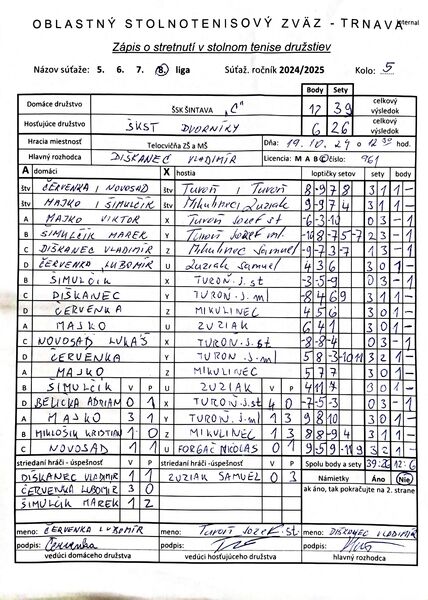 OBLASTNÝ STOLNOTENISOVÝ ZVÄZ - TRNAVA
Zápis o stretnutí v stolnom tenise družstiev
Názov súťaže: 5. 6. 7. 8. liga Súťaž. ročník 2024/2025 Kolo: 5
Body Sety
Domáce družstvo ŠSK ŠINTAVA "C" 12 39 celkový výsledok
Hosťujúce družstvo ŠKST DVORNÍKY 6 26 celkový výsledok
Hracia miestnosť Telocvičňa ZŠ a MŠ Dňa: 19.10.24 o
Hlavný rozhodca DIŠKANEC VLADIMÍR Licencia: M A B C číslo: 961
A domáci X hostia loptičky setov sety body
štv ČERVENKA / NOVOSAD štv Turoň / Turoň 8-978 3 1 1 -
štv MAJKO / ŠIMULČÍK štv Mikulinec Zuziak 9-974 3 1 1 -
A MAJKO VIKTOR X Turoň Jozef st 0 3 - 1
B ŠIMULČÍK MAREK Y Turoň Jozef ml. 2 3 - 1
C DIŠKANEC VLADIMÍR Z Mikulinec Samuel -9-73-7 1 3 - 1
D ČERVENKA ĽUBOMÍR U Zuziak Samuel 4 3 6 3 0 1 -
B ŠIMULČÍK X TUROŇ.J.st -3-5-9 0 3 - 1
C DIŠKANEC Y TUROŇ.J.ml -8469 3 1 1 -
D ČERVENKA Z MIKULINEC 4 5 6 3 0 1 -
A MAJKO U ZUZIAK 6 4 1 3 0 1 -
C NOVOSAD LUKÁŠ X TUROŇ.J.st -8-8-4 0 3 - 1
D ČERVENKA Y TURON.J.ml 5 8 -3-10 11 3 2 1 -
A MAJKO Z MIKULINEC 5 7 7 3 0 1 -
B ŠIMULČÍK V P U ZUZIAK V P 4 11 7 3 0 1 -
D BELICKA ADRIAN 0 1 X TURON.J.st 4 0 -7-5-3 0 3 - 1
A MAJKO 3 1 Y TURON.J-ml 1 3 9 8 10 3 0 1 -
B MIKLOŠIK KRISTIAN 1 0 Z MIKULINEC 1 3 8 8-9 4 3 1 1 -
C NOVOSAD 1 1 U FORGÁČ NIKOLAS 0 1 3 2 1 -
striedaní hráči - úspešnosť V P striedaní hráči - úspešnosť V P Spolu body a sety 39:26 12:6
DIŠKANEC VLADIMÍR 1 1 ZUZIAK SAMUEL 0 3 Námietky Áno Nie
ČERVENKA ĽUBOMÍR 3 0 ak áno, tak pokračujte na 2. strane
ŠIMULČÍK MAREK 1 2
meno: ČERVENKA ĽUBOMÍR meno: Turoň Jozef st meno: DIŠKANEC VLADIMÍR
podpis: Červenka podpis: podpis:
vedúci domáceho družstva vedúci hosťujúceho družstva hlavný rozhodca